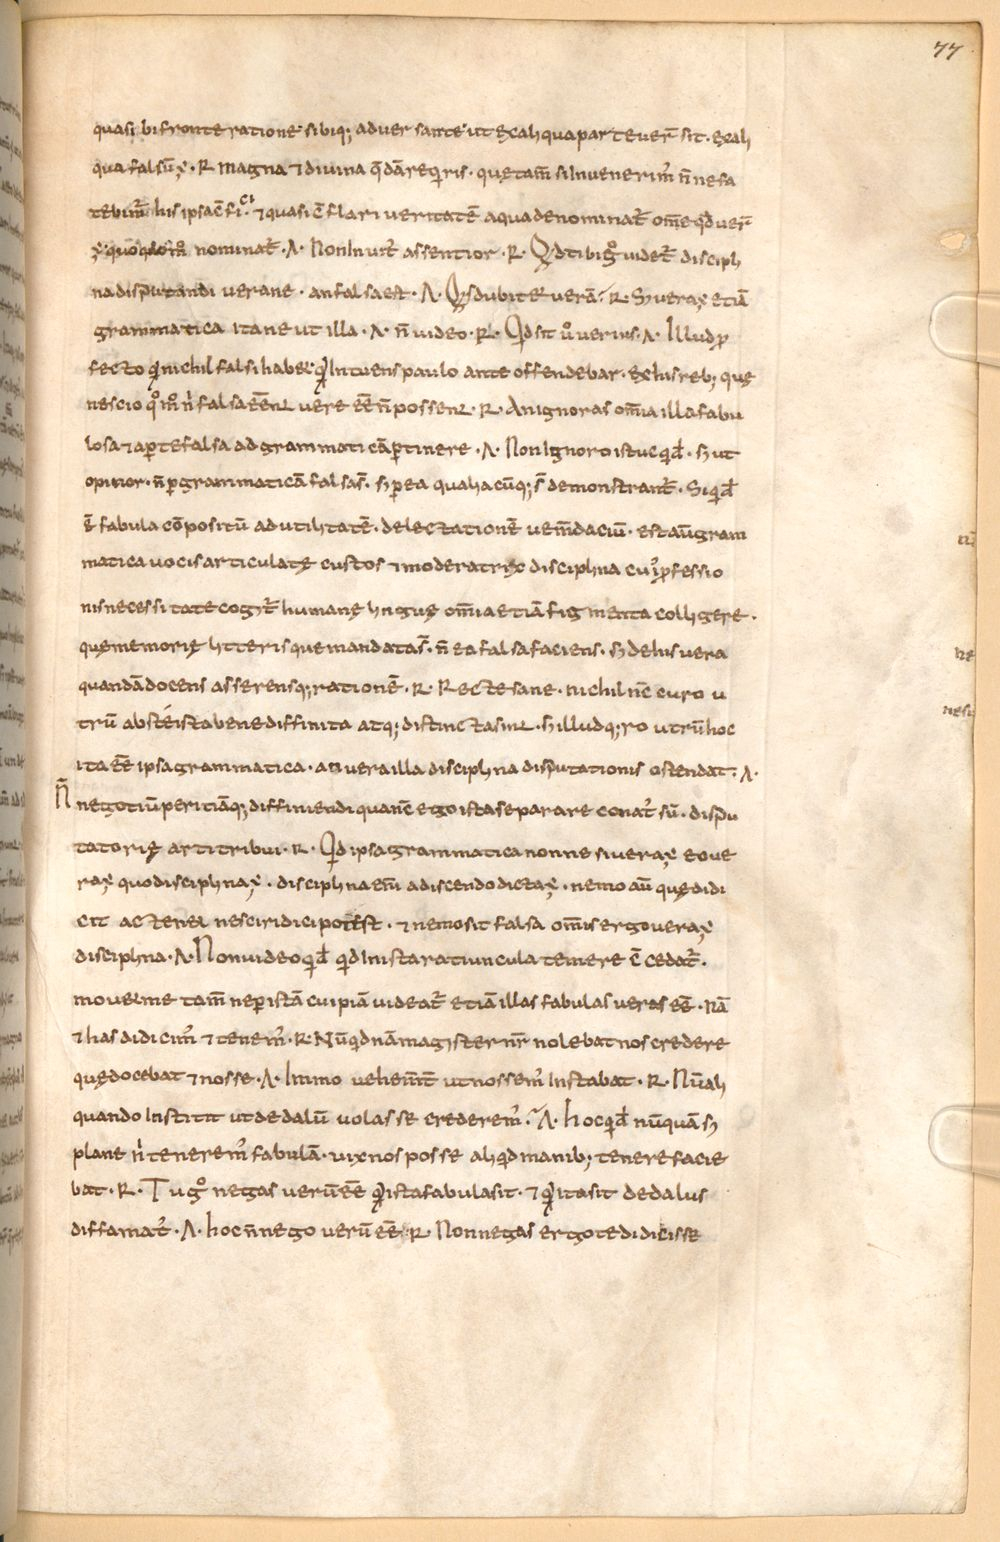 77
quasi bifronte ratione sibiq; aduersante ut ex aliqua parte ueȓ sit · ex ali
qua falsū ÷ · R Magna & diuina q̄dā req̇ris · quę tam̄ si inuenerim᷒ n̄ne fa
tebim᷒ his ipsa c̄fici · & quasi c̄flari ueritatē a qua denominat᷒ om̄e qd̄ ueȓ
nominat᷒ · A · Non inuit᷒ assentior · R · Qd tibi g̊ uidet᷒ discipli
na disputandi uerane · an falsa est · A · Q̇s dubitet uerā · R · S; uera ÷ etiā
grammatica itane ut illa · A · n̄ uideo · R · Qd sit ů uerius · A · Illud ꝓ
fecto qđ nichil falsi habet qđ intuens paulo ante offendebar · ex his reb; quę
nescio q̊ m̊ n̓ falsa eēnt uere eē n̄ possent · R · An ignoras om̄ia illa fabu
losa & aꝑte falsa ad grammaticā ꝑtinere · A · Non ignoro istuc qđ · s; ut
opinor · n̄ ꝑ grammaticā falsa s̄ · s; ꝑ ea qualiacūq; s̄ demonstrant᷒ · Siqđ
ē fabula cōpositū ad utilitatē · delectationē ue m̄daciū · est aū gram
matica uocis articulatę custos & moderatrix disciplina cui᷒ ꝓfessio
nis necessitate cogit᷒ humanę linguę om̄ia etiā figmenta colligere ·
quę memorię litterisque mandata s̄ · n̄ ea falsa faciens · s; de his uera
quandā docens asserensq; rationē · R · Recte sane · nichil nc̄ curo u
trū abs te ista bene diffinita atq; distincta sint · s; illud q;ro utrū hoc
ita eē ipsa grammatica · an uera illa disciplina disputationis ostendat · A ·
N̄ nego tiū peritiāq; diffiniendi qua nc̄ ego ista separare conat᷒ sū · dispu
tatorię arti tribui · R · Qd ipsa grammatica nonne si uera ÷ eo ue
ra ÷ quo disciplina ÷ · disciplina em̄ a discendo dicta ÷ · nemo aū quę didi
cit ac tenet nescire dici potest · & nemo sit falsa om̄is ergo uera ÷
disciplina · A · Non uideo qđ qd in ista ratiuncula temere c̄cedat᷒ ·
mouet me tam̄ ne ꝑ istā cuipiā uideat᷒ etiā illas fabulas ueras eē · nā
& has didicim᷒ & tenem᷒ · R · Nūqd nam magister nr̄ nolebat nos credere
quę docebat & nosse · A · Immo uehem̄t ut nossem᷒ instabat · R · Nū ali
quando institit ut dedalū uolasse crederem᷒ · A · Hoc qđ nūquā s;
plane n̓ tenerem᷒ fabulā · uix nos posse aliqd manib; tenere facie
bat · R · Tu g̊ negas uerū eē qđ ista fabula sit · & qđ ita sit dedalus
diffamat᷒ · A · hoc n̄ nego uerū eē · R · Non negas ergo te didicisse